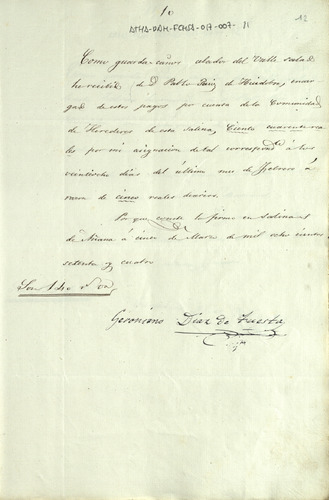 10
12
ATHA-DAH-FCHSA-017-007-11
Como guarda-caños celador del Valle salado
he recibido de D. Pablo Ruiz de encar
gado de estos pagos por cuenta de la Comunidad
de Herederos de esta salina, Ciento cuarenta rea
les por mi asignacion de tal correspondte. á los
veintiocho dias del último mes de Febrero á
razon de cinco reales diarios.
Por que conste lo firmo en Salinas
de Añana á cinco de Marzo de mil ocho cientos
setenta y cuatro
Son 140 rs. vn.
Geronimo Diaz de Tuesta